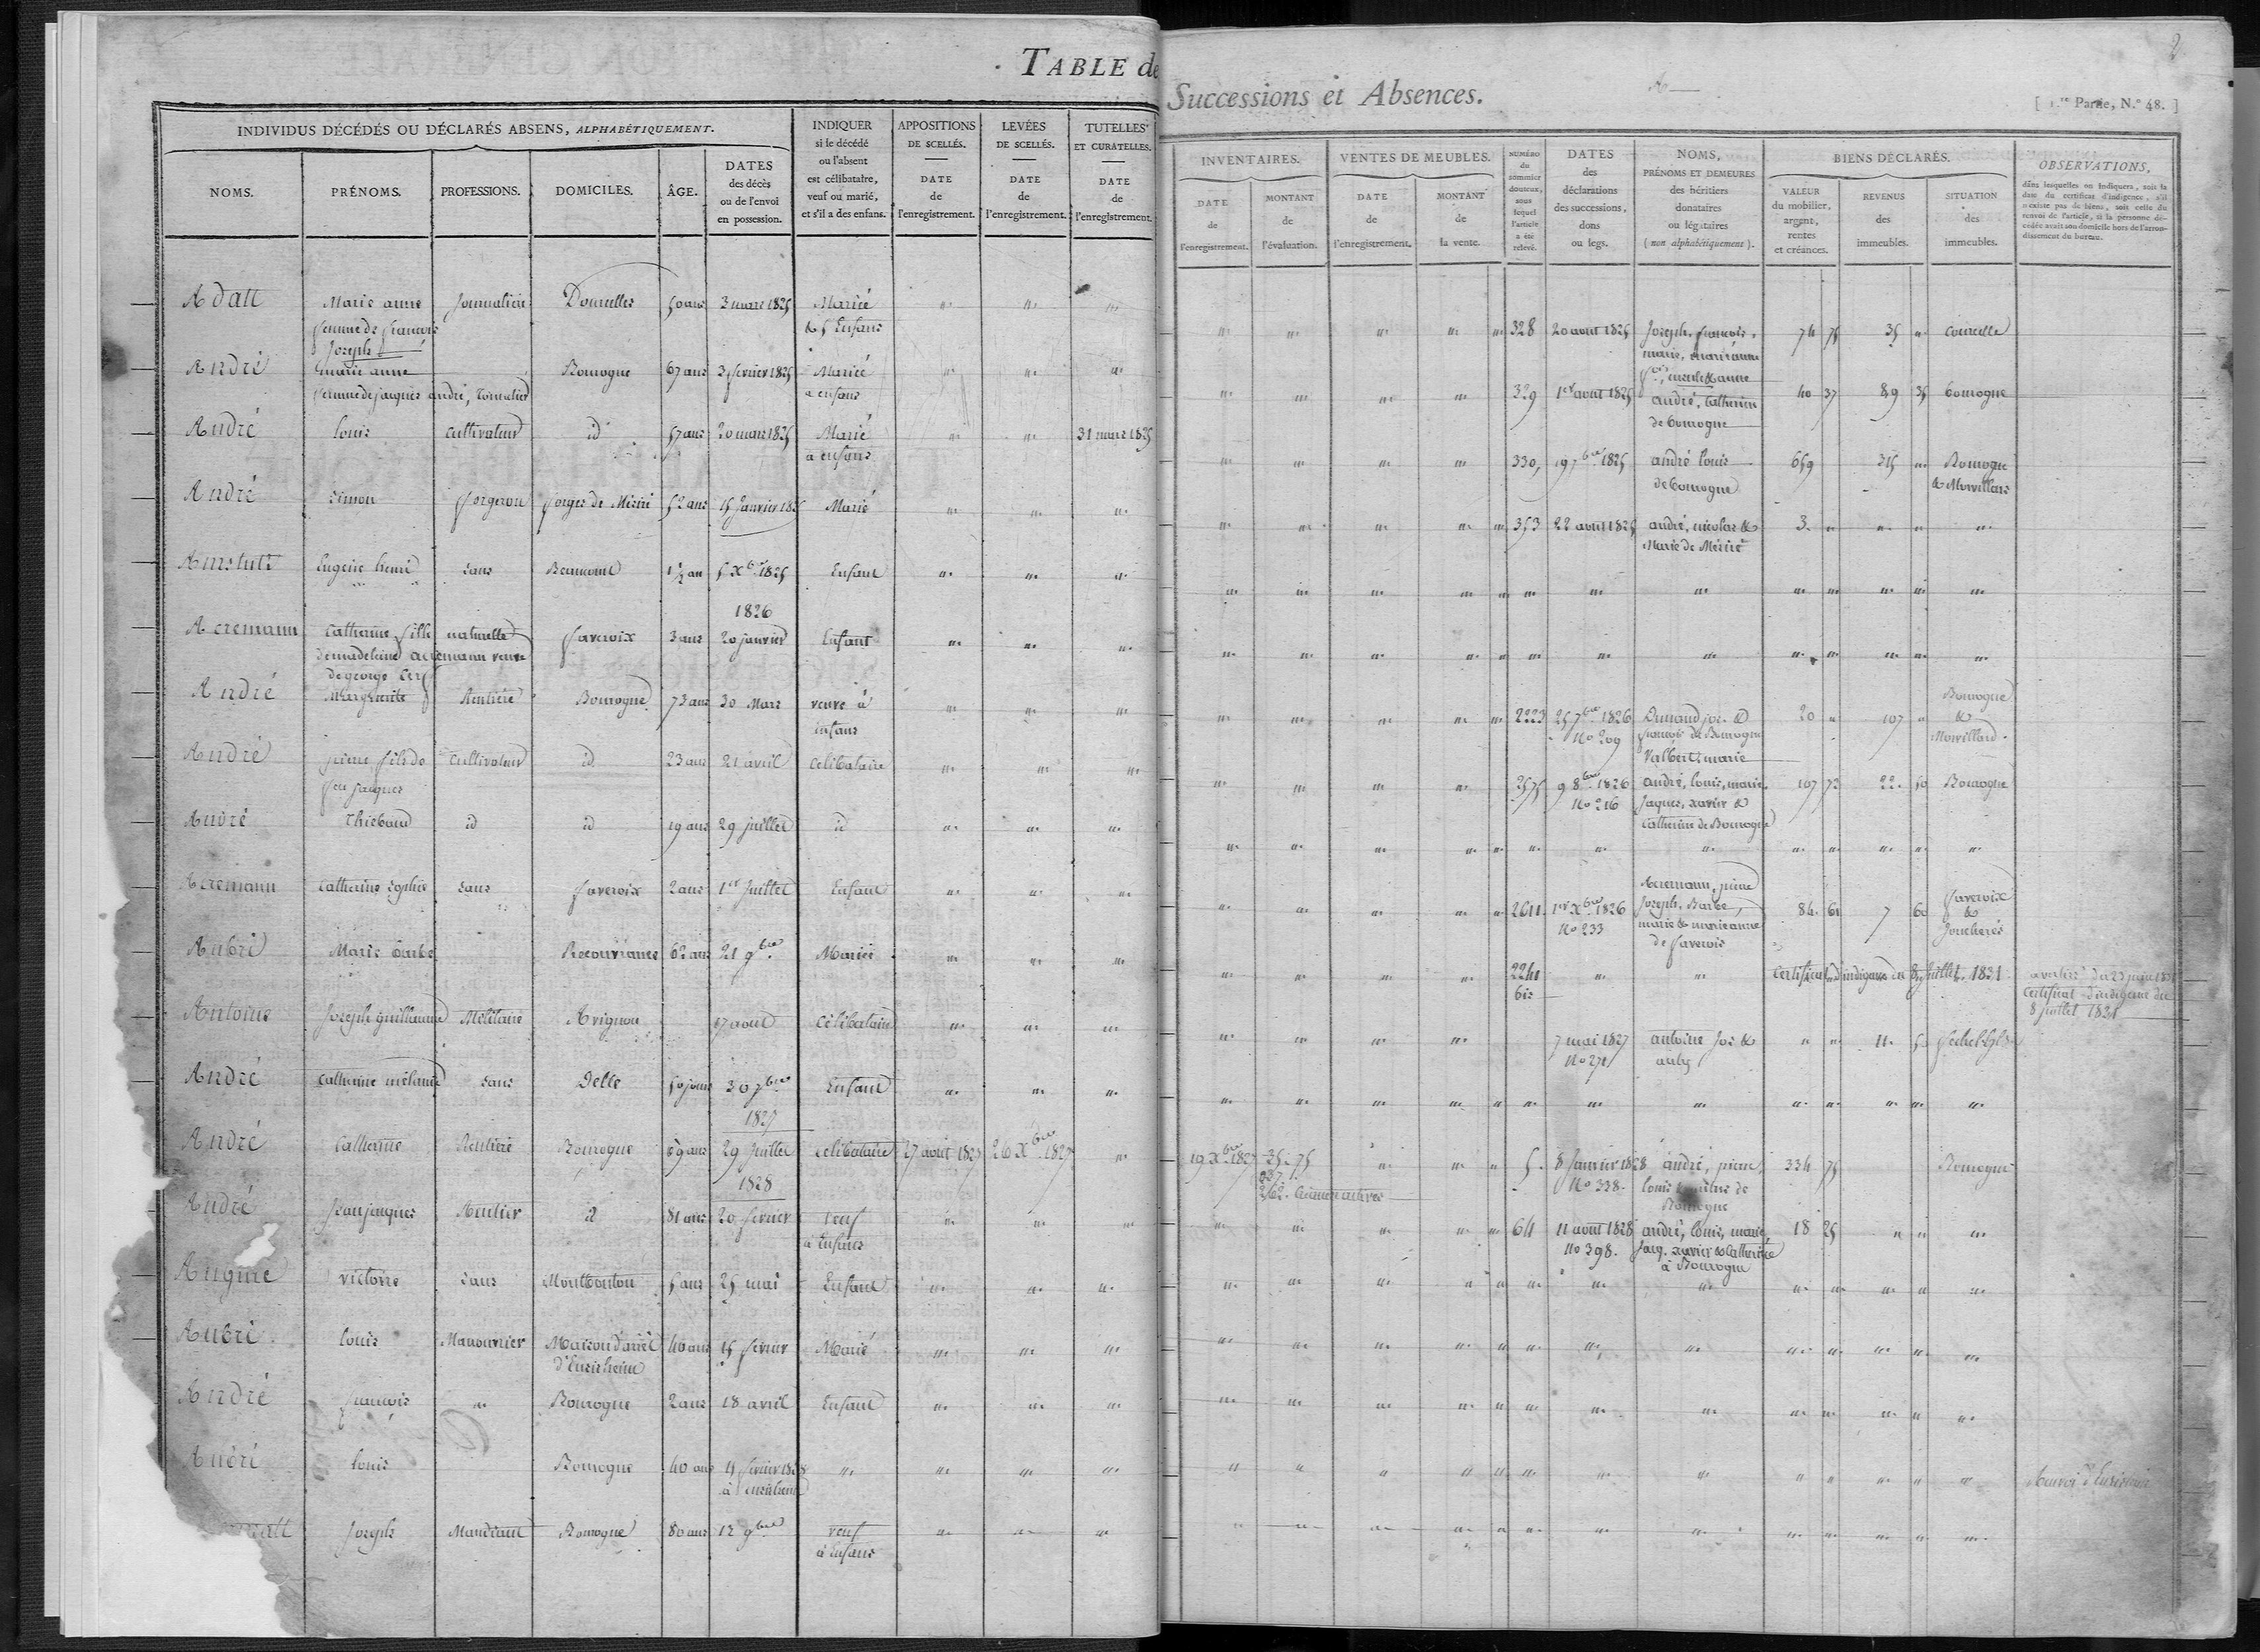 TABLE de Successions et Absences.
2
[ 1.re Partie, N.º 48. ]
INDIVIDUS DÉCÉDÉS OU DÉCLARÉS ABSENS, ALPHABÉTIQUEMENT.
NOMS.
PRÉNOMS.
PROFESSIONS.
DOMICILES.
ÂGE.
DATES
des décès
ou de l'envoi
en possession.
INDIQUER
si le décédé
ou l'absent
est célibataire,
veuf ou marié,
et s'il a des enfans.
APPOSITIONS
DE SCELLÉS.
DATE
de
l'enregistrement.
LEVÉES
DE SCELLÉS.
DATE
de
l'enregistrement.
TUTELLES
ET CURATELLES.
DATE
de
l'enregistrement.
INVENTAIRES.
DATE
de
l'enregistrement.
MONTANT
de
l'évaluation.
VENTES DE MEUBLES.
DATE
de
l'enregistrement.
MONTANT
de
la vente.
NUMÉRO
du
sommier
douteux,
sous
lequel
l'article
a été
relevé.
DATES
des
déclarations
des successions,
dons
ou legs.
NOMS,
PRÉNOMS ET DEMEURES
des héritiers
donataires
ou légataires
( non alphabétiquement ).
BIENS DÉCLARÉS.
VALEUR
du mobilier,
argent,
rentes
et créances.
REVENUS
des
immeubles.
SITUATION
des
immeubles.
OBSERVATIONS,
dans lesquelles on indiquera, sois la
date du certificat d'indigence, s'il
n'existe pas de biens, sois celle du
renvoi de l'article, si la personne dé-
cédée avait son domicile hors de l'arron-
dissement du bureau.
Adatt Marie anne journalière 50 ans 3 mars 1825 Mariée 328 20 aout 1825 Joseph, francois, 74 75 35 Courcelle
femme de francois & 5 Enfans marie, marianne
Joseph
André marie anne Bourogne 67 ans 3 février 1825 Mariée 329 1er aout 1825 40 37 89 35 bourogne
femme de jacques andré, a enfans andré, Catherine
de bourogne
André louis cultivateur id 57 ans 20 mars 1825 Marié 31 mars 1825 330 19 7bre 1825 andré louis 659 315 Bourogne
à enfans de bourogne & Morvillars
André Simon forgeron forges de Méziré 52 ans 15 Janvier 1825 Marié 353 22 avril 1825 andré, nicolas & 3
Marie de Méziré
Eugène henri Sans Beaucourt 1 1/2 an 5 Xbre 1825 Enfant
1826
Acremann Catherine fille naturelle faveroix 3 ans 20 janvier Enfant
de madeleine acremann veuve
de george
André marguerite Rentière Bourogne 73 ans 30 Mars veuve à 2223 25 7bre 1826 20 107 Bourogne
enfans No 209 francois de Bourogne &
Morvillard
André pierre fils de Cultivateur id 23 ans 21 avril Célibataire 2575 9 8bre 1826 andré, louis, marie, 107 73 22 50 Bourogne
feu Jacques No 216 Jaques, xavier &
Catherine de Bourogne
André Thiébaud id id 19 ans 29 juillet id
Acremann Catherine Sophie Sans faveroix 2 ans 1er Juillet Enfant 2611 1er Xbre 1826 Acremann, pierre 84 61 7 60 faveroix
No 233 Joseph, Barbe, &
marie & marie anne Joncherés
de faverois
Aubré Marie Barbe Recouvrance 62 ans 21 9bre Mariée 2241 Certificat d'indigence du 8 juillet 1831
bis Certificat d'indigence du
8 juillet 1831
Antoine Joseph guillaume Militaire Avignon 17 aout Célibataire 7 mai 1827 antoine Jos & 11 50
No 271
André Catherine mélanie Sans Delle 50 jours 30 7bre Enfant
1827
André Catherine Rentière Bourogne 69 ans 29 Juillet Célibataire 27 aout 1827 26 Xbre 1827 19 Xbre 1827 35-75 5 8 Janvier 1828 andré, pierre 334 75 Bourogne
237 No 338 louis de
Bourogne
1828
André Jean jacques Rentier id 81 ans 20 février veuf 64 11 aout 1828 andré, louis, marie, 18 25
à Enfans No 398 Jacq. xavier & Catherine
à Bourogne
victoire Sans Montbouton 5 ans 25 mai Enfant
Aubré louis Manouvrier Maison d'arrêt 40 ans 15 février Marié
d'Ensisheim
André francois Bourogne 2 ans 18 avril Enfant
Aubré louis Bourogne 40 ans février 1828 Renvoi d'Ensisheim
Joseph Mandiant Bourogne 80 ans 12 9bre veuf
à Enfans